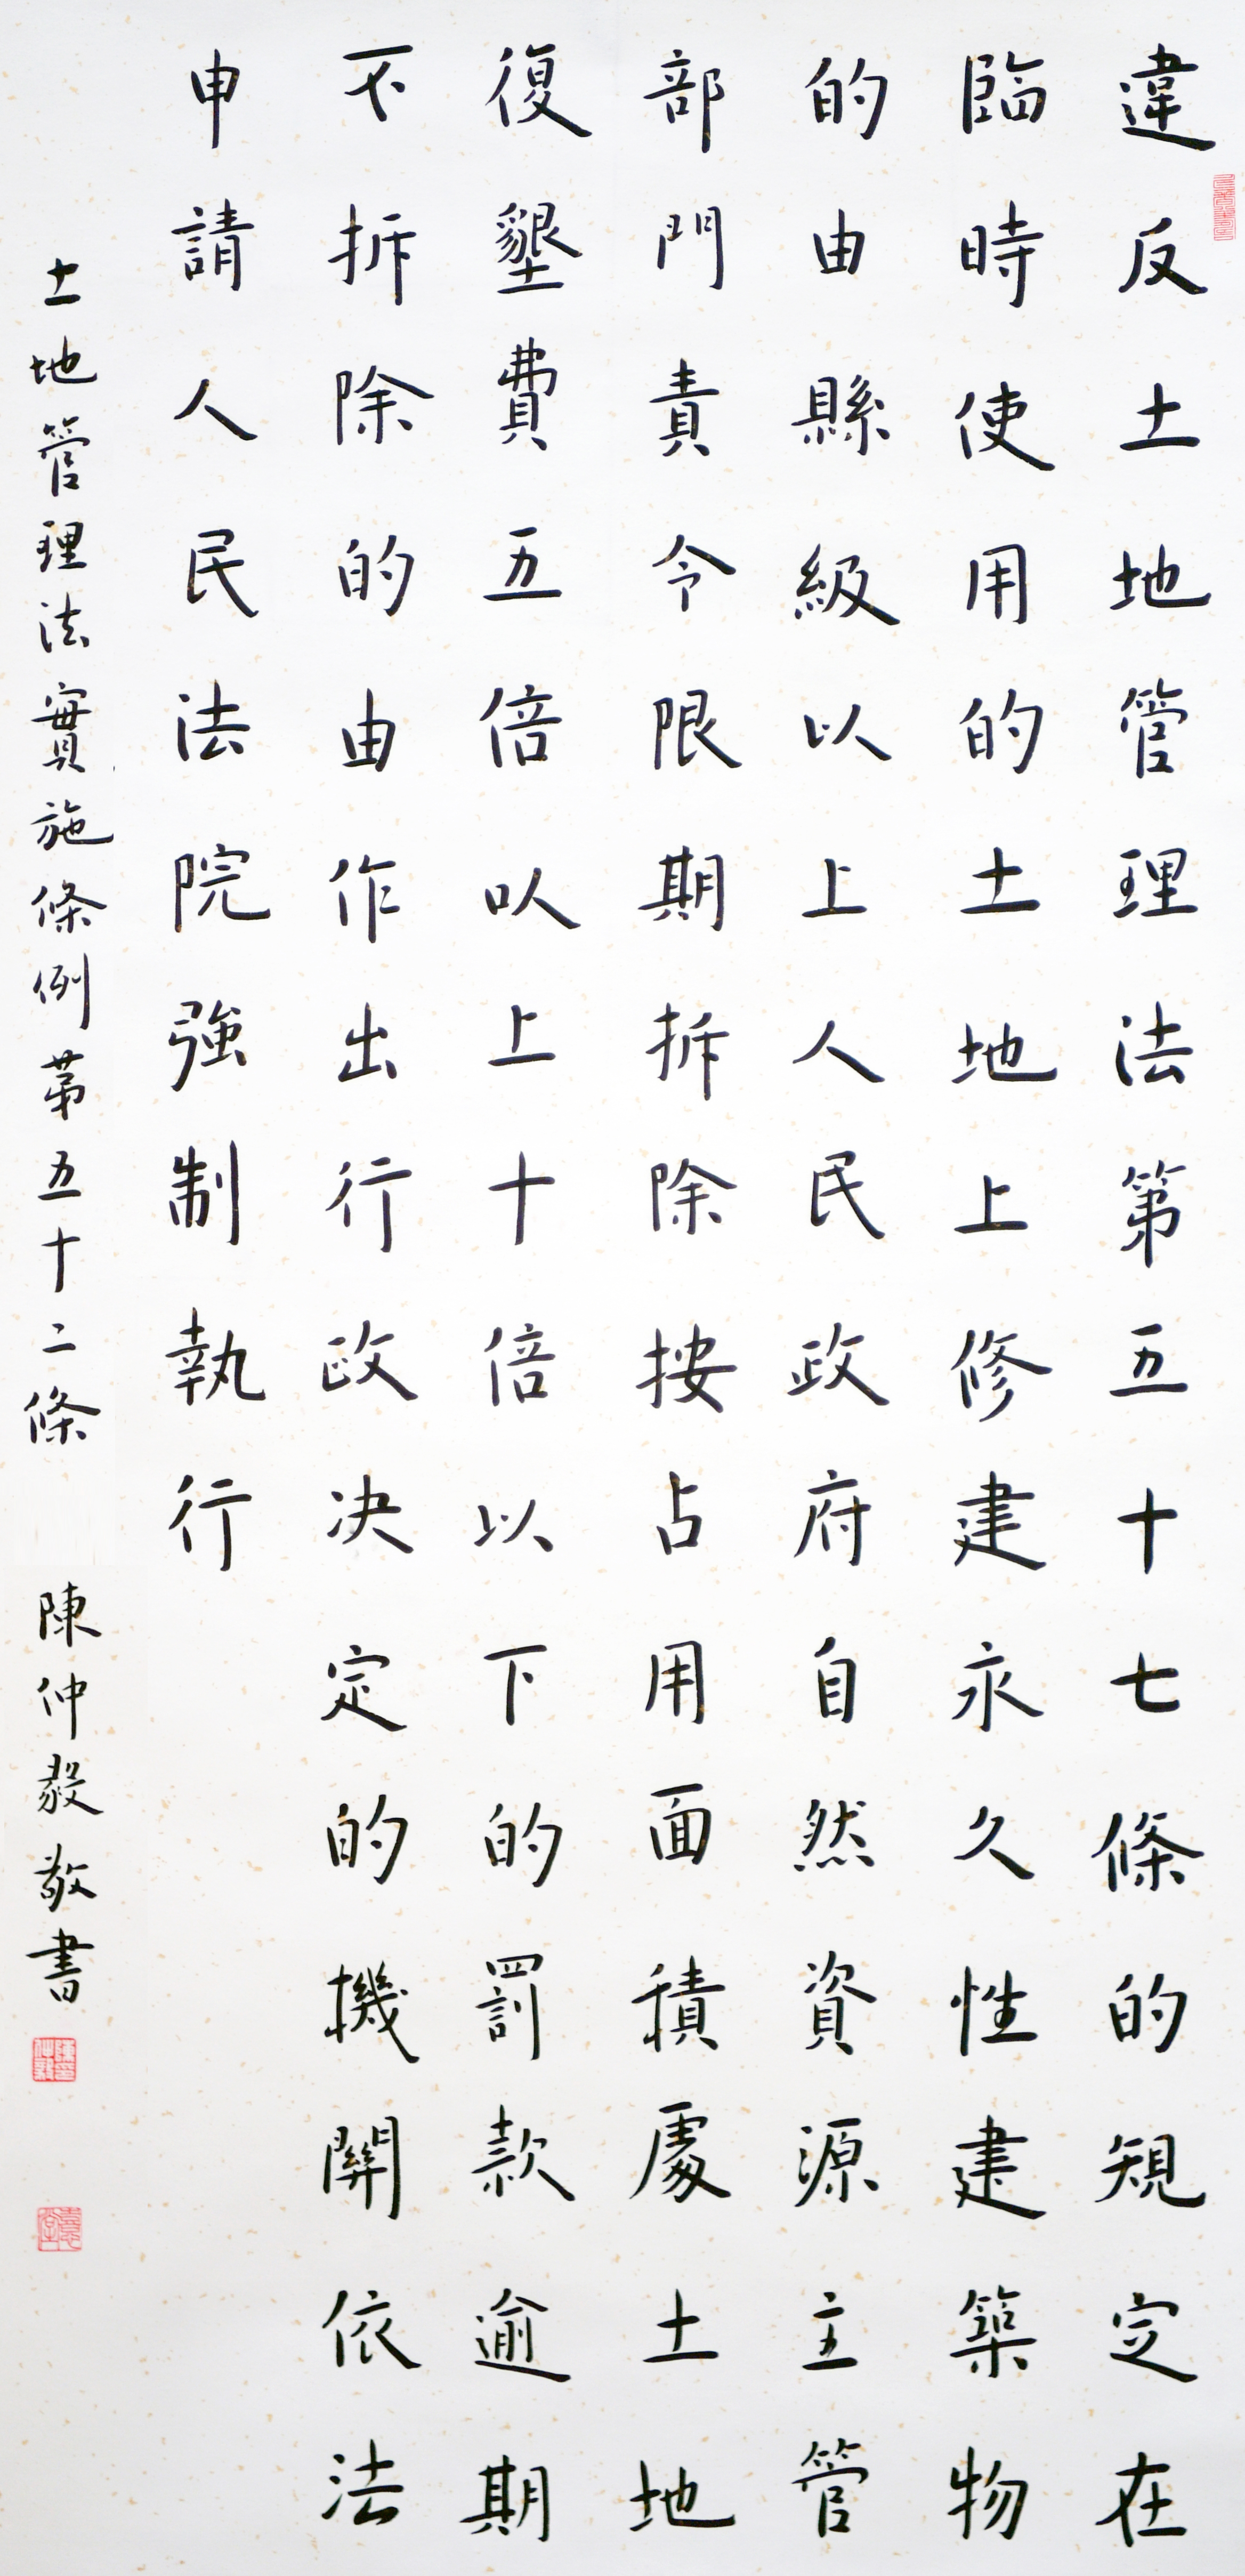 違反土地管理法第五十七條的規定在
臨時使用的土地上修建永久性建築物
的由縣級以上人民政府自然資源主管
部門責令限期拆除按占用面積處土地
復墾費五倍以上十倍以下的罰款逾期
不拆除的由作出行政决定的機關依法
申請人民法院強制執行
土地管理法實施條例第五十二條 陳仲毅敬書